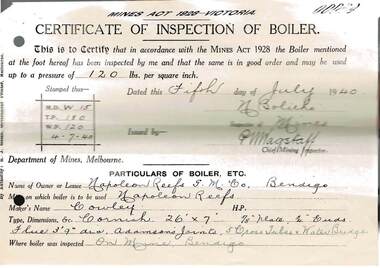 MINES ACT 1928-VICTORIA
CERTIFICATE OF INSPECTION OF BOILER.
This is to Certify that in accordance with the MINES ACT 1928 the Boiler mentioned
at the foot hereof has been inspected by me and that the same is in good order and may be used
up to a pressure of 120 lbs. per square inch.
Stamped thus—
Dated this Fifth day of July 1940
M.D.W 15
T.P. 180
W.P. 120
4-7-40
Issued by
Inspector of Mines
Chief Mining Inspector.
Department of Mines, Melbourne.
PARTICULARS OF BOILER, ETC.
Name of Owner or Lessee Napoleon Reefs G. M. Co, Bendigo
Mine on which boiler is to be used Napoleon Reefs
Maker's Name Cowley H.P.
Type, Dimensions, &c. Cornish 26' x 7' Plate, Ends
Flue 3'9" dia, Adamsons Joints, 5 Cross Tubes & Water Bridge
Where boiler was inspected On Mine, Bendigo